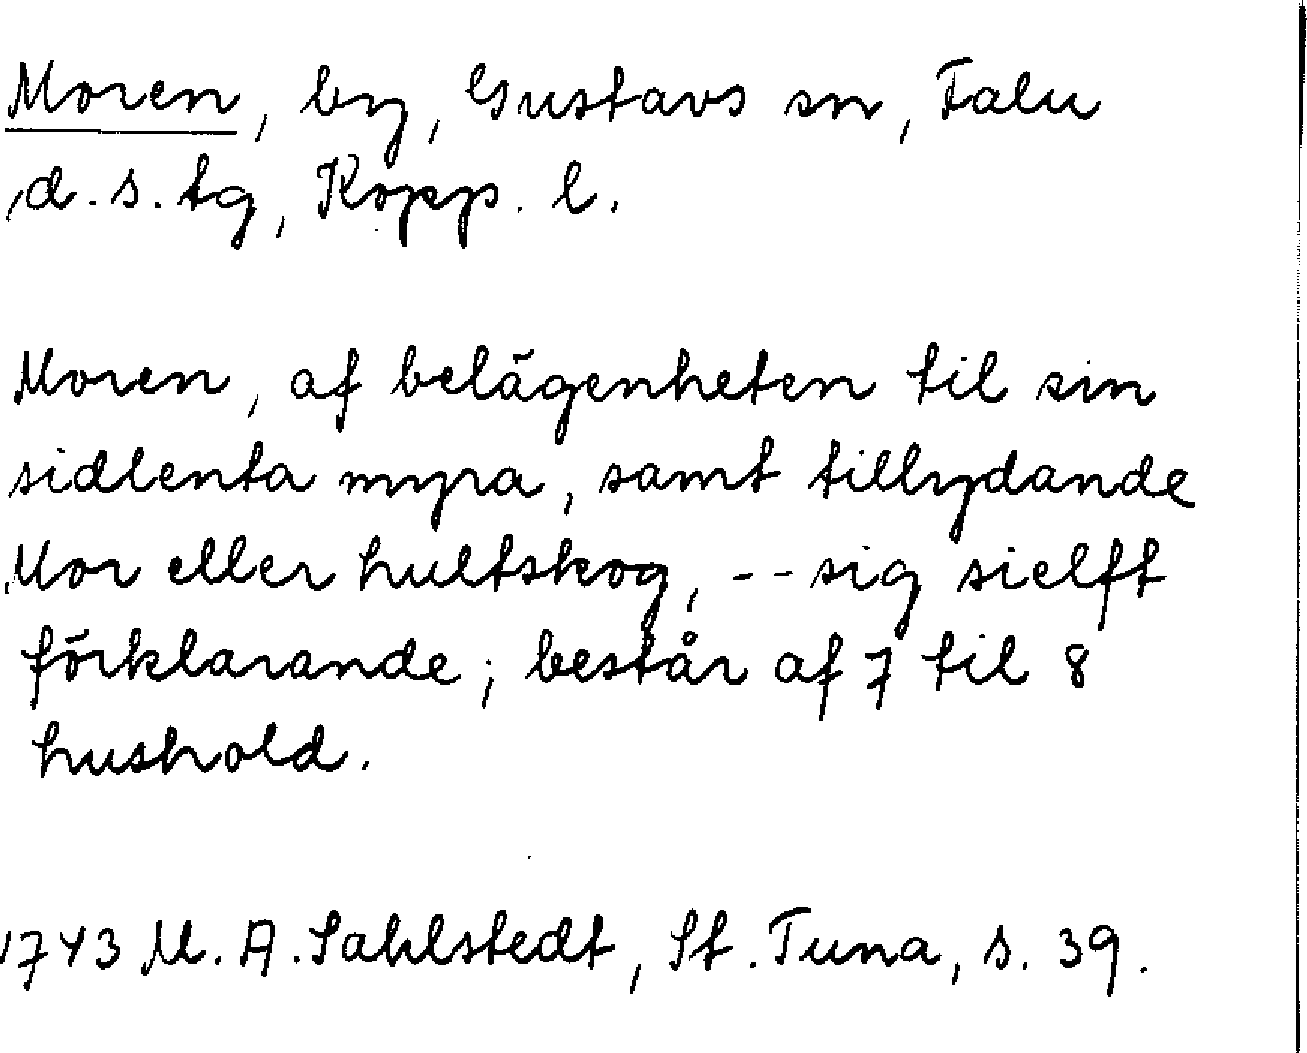 Moren, by, Gustavs sn, Falu
d.s. tg, Kopp. l.
Moren, af belägenheten til sin
sidlenta myra, samt tillydande
Mor eller hultskog, -- sig sielft
förklarande; består af 7 til 8
hushold.
1743 M. A. Sahlstedt, St. Tuna, s. 39.